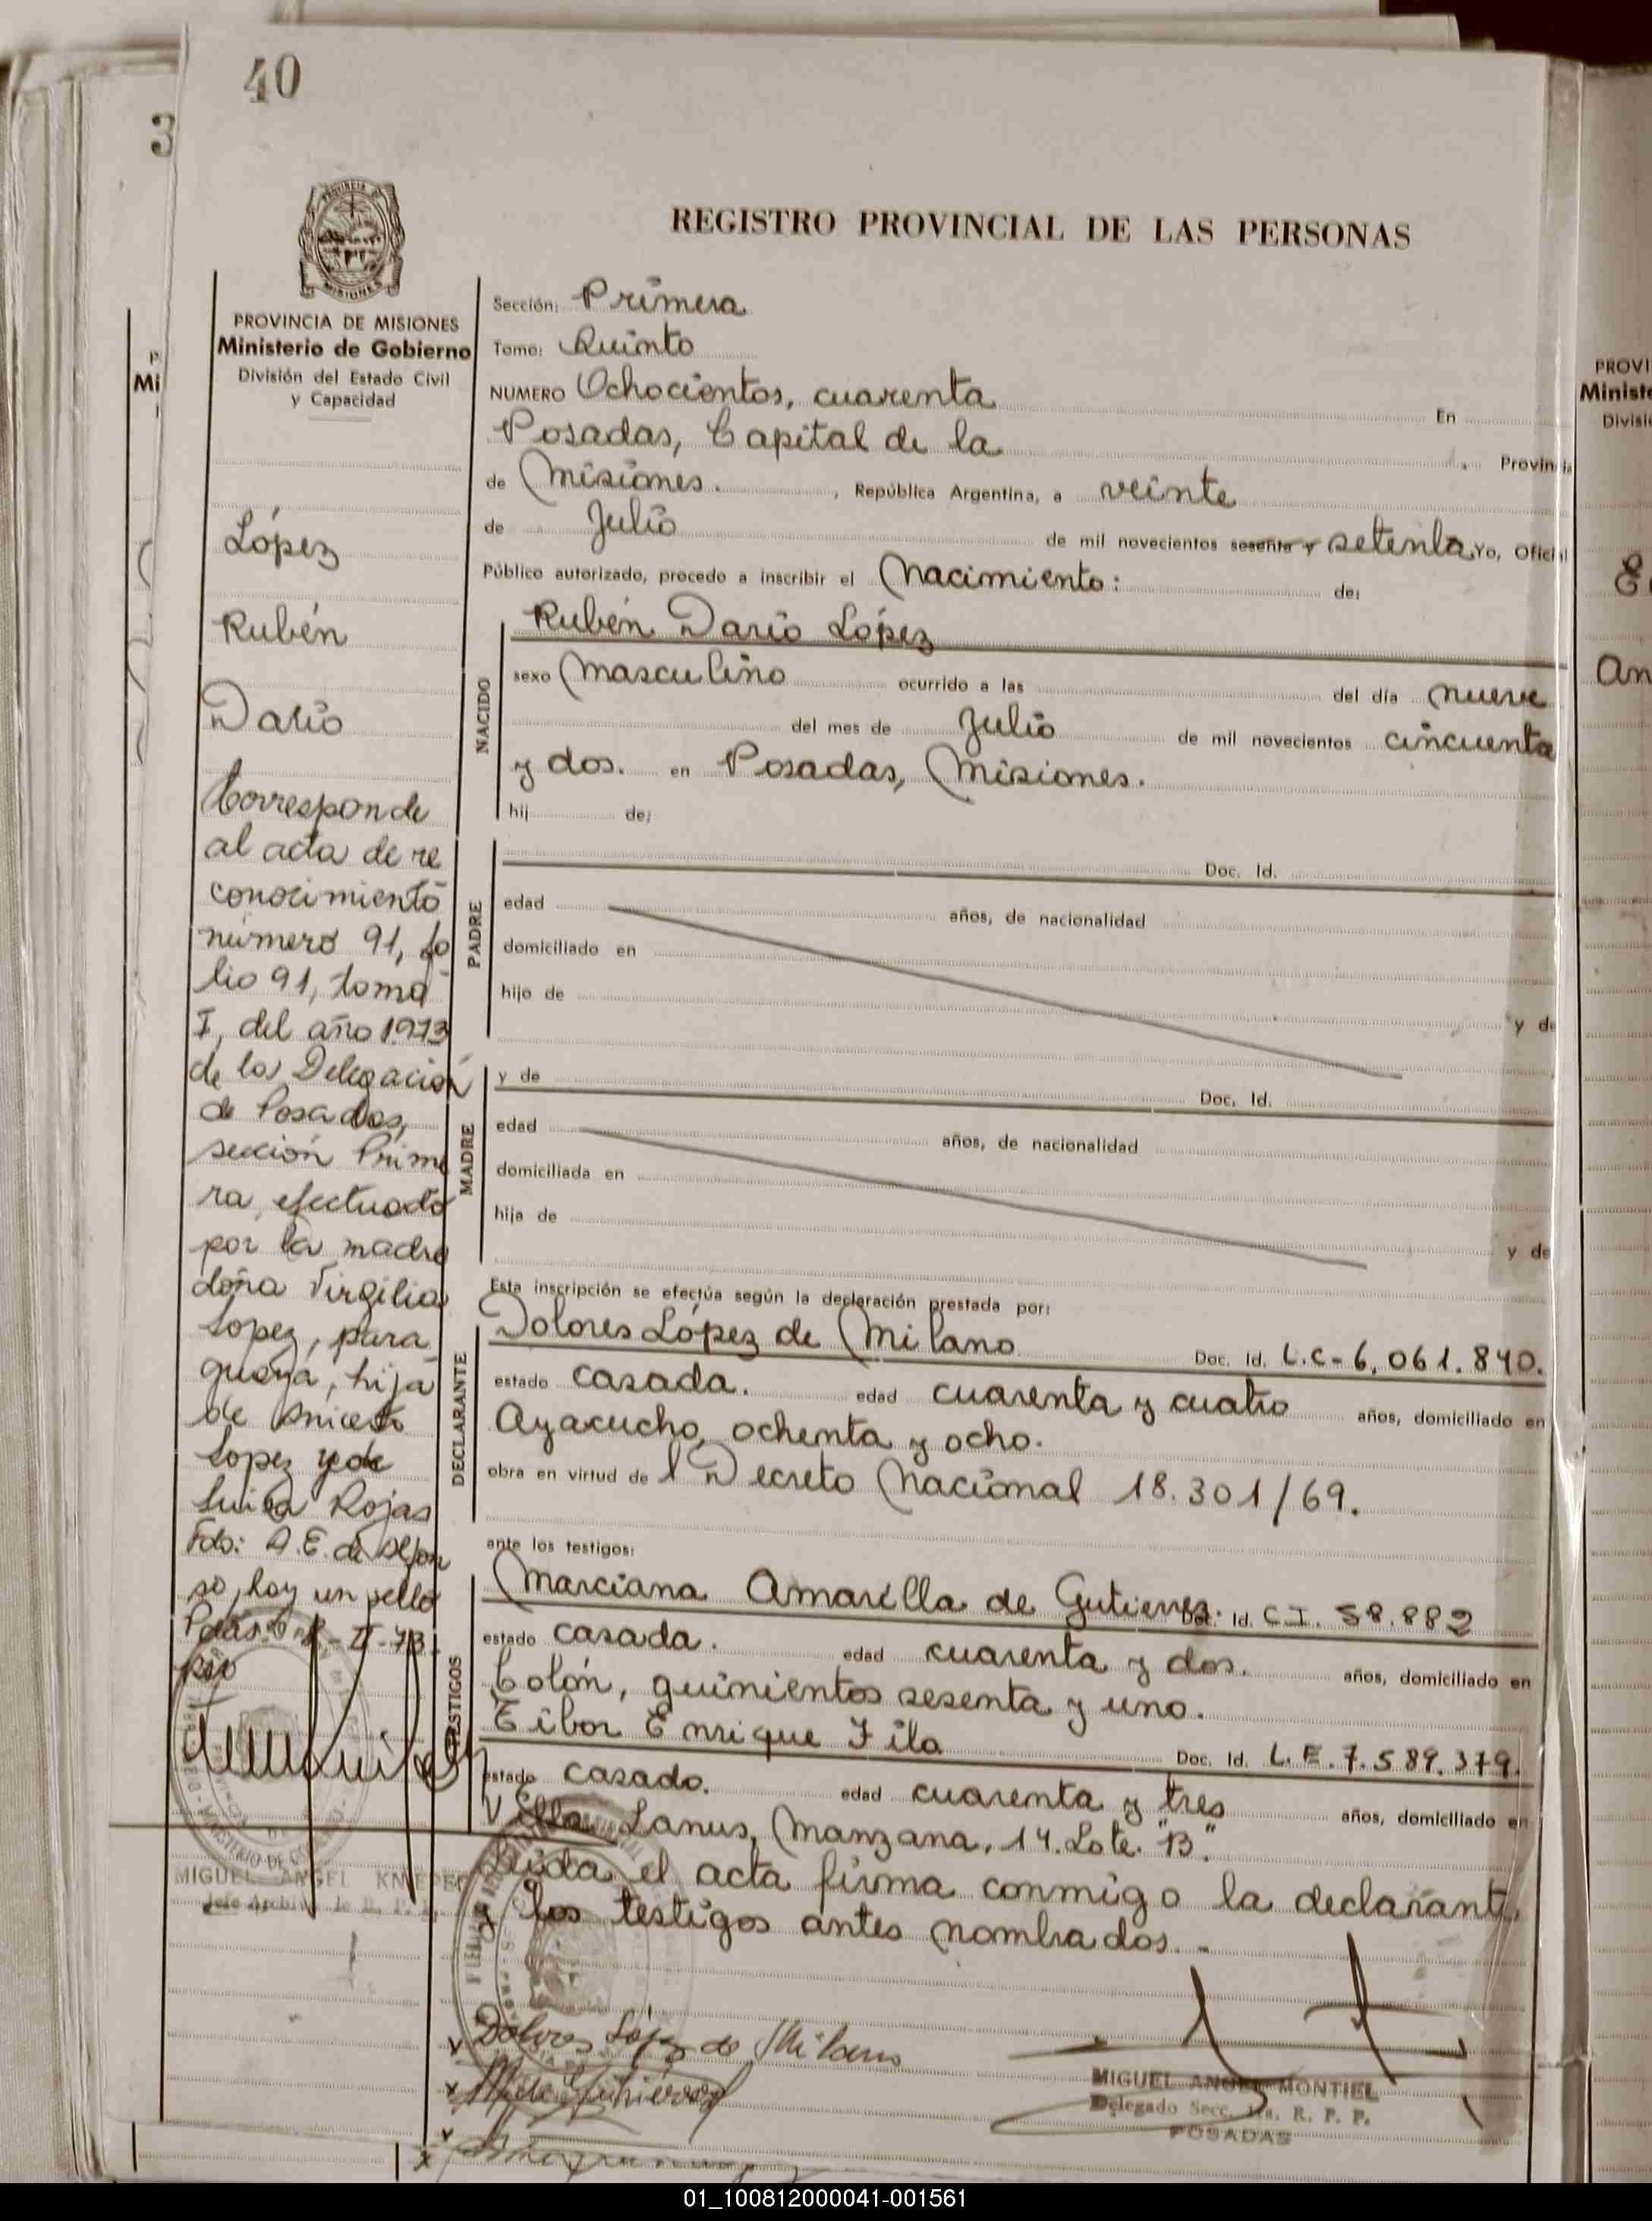 40
3
REGISTRO PROVINCIAL DE LAS PERSONAS
PROVINCIA DE MISIONES
Ministerio de Gobierno
División del Estado Civil
y Capacidad
López
Rubén
Darío
Corresponde
al acta de re
conocimiento
número 91, fo
lio 91, tomo
I, del año 1973
de la Delegación
de Posadas,
sección Prime
ra, efectuado
por la madre
doña Virgilia
Lopez, para
guaya, hija
de Aniceto
Lopez y de
Luisa Rojas
Fdo: A.E. de Alfon
so, hay un sello
MIGUEL ANGEL
Sección: Primera
Tomo: Quinto
NUMERO Ochocientos, cuarenta En
Posadas, Capital de la Provincia
de Misiones. , República Argentina, a veinte
de Julio de mil novecientos sesenta y setenta, Yo, Oficial
Público autorizado, procedo a inscribir el Nacimiento: de:
NACIDO
Rubén Darío López
sexo Masculino ocurrido a las del día nueve
del mes de Julio de mil novecientos cincuenta
y dos. en Posadas, Misiones.
hij de:
PADRE
Doc. Id.
edad años, de nacionalidad
domiciliado en
hijo de
y de
MADRE
y de Doc. Id.
edad años, de nacionalidad
domiciliada en
hija de
y de
Esta inscripción se efectúa según la declaración prestada por:
DECLARANTE
Dolores López de Milano Doc. Id. L.C-6.061.840.
estado casada. edad cuarenta y cuatro años, domiciliado en
Ayacucho, ochenta y ocho.
obra en virtud de l Decreto Nacional 18.301/69.
ante los testigos:
TESTIGOS
Marciana Amarilla de Gutierrez. Doc. Id. C.I. 58.882
estado casada. edad cuarenta y dos. años, domiciliado en
Colón, quinientos sesenta y uno.
Tibor Enrique Fila Doc. Id. L.E. 7.589.379.
estado casado. edad cuarenta y tres años, domiciliado en
Villa Lanus, Manzana, 14. Lote. "B".
Leída el acta firma conmigo la declarante,
y los testigos antes nombrados.-
Dolores López de Milano
MIGUEL ANGEL MONTIEL
Delegado Secc. 1ra. R. P. P.
POSADAS
PROVI
Ministe
Divisi
01_100812000041-001561